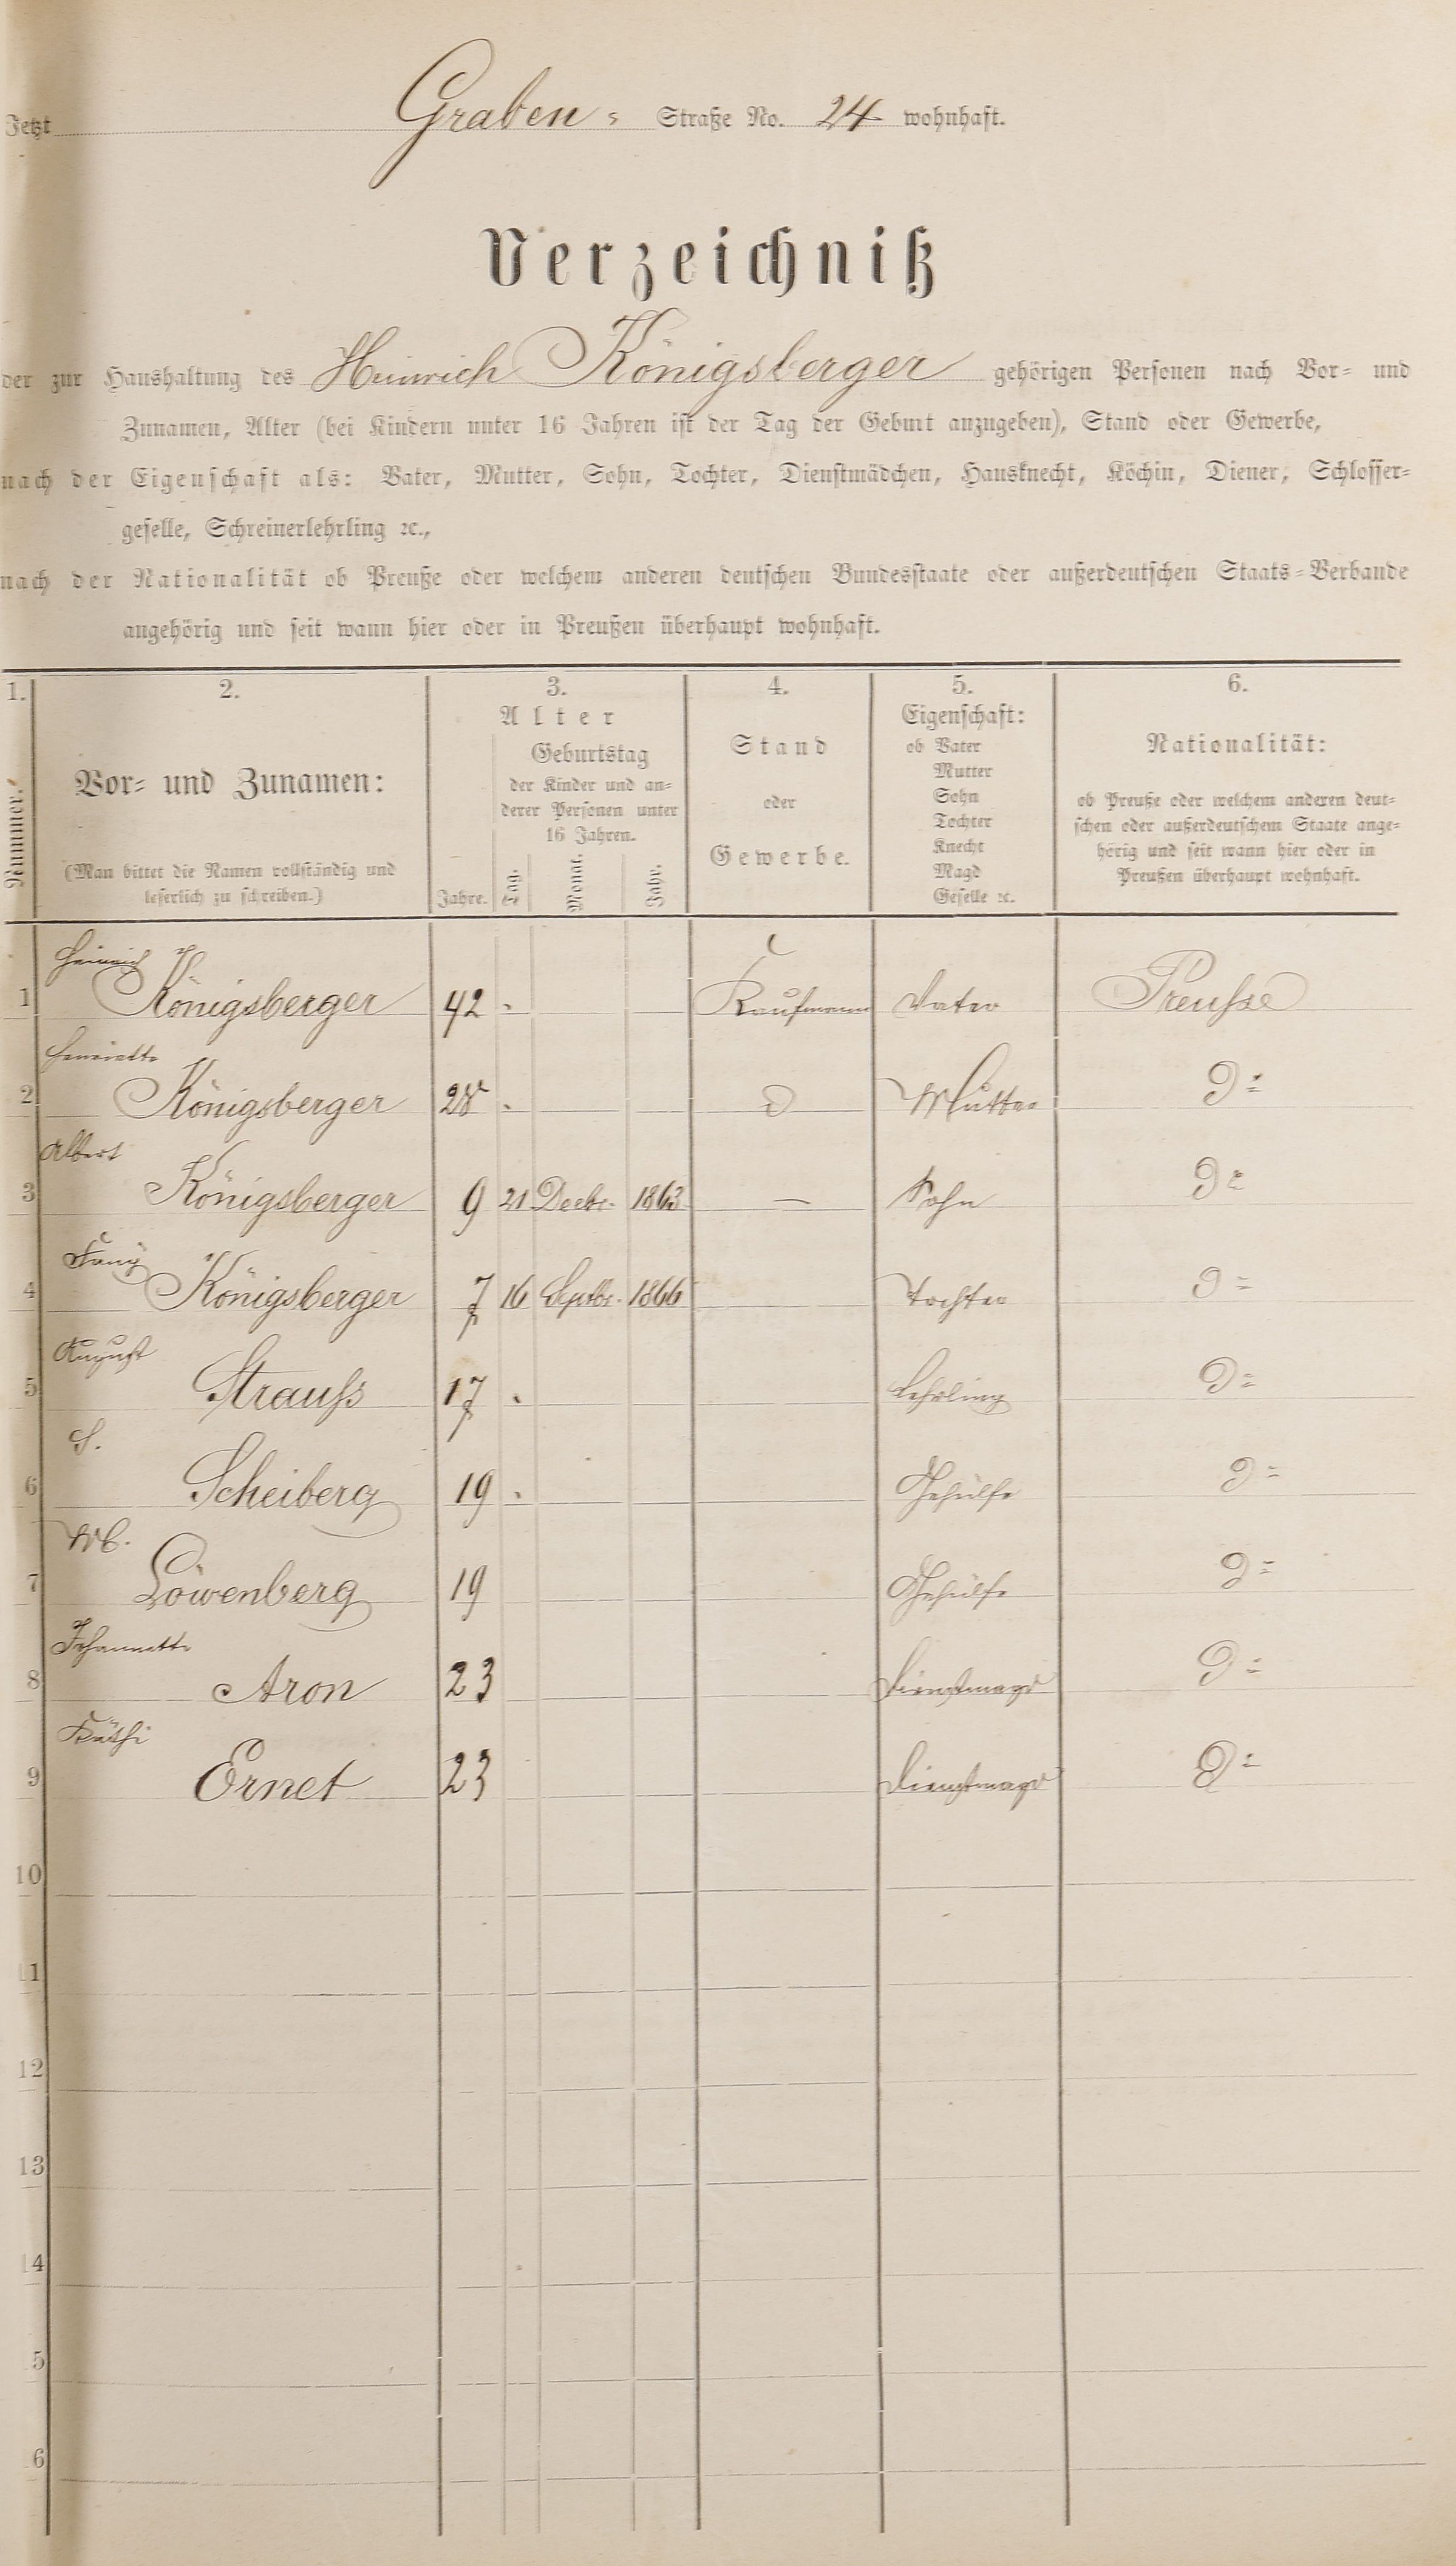 Jetzt Graben- Straße No. 24 wohnhaft.
Verzeichniß
der zur Haushaltung des Heinrich Königsberger gehörigen Personen nach Vor- und
Zunamen, Alter (bei Kindern unter 16 Jahren ist der Tag der Geburt anzugeben), Stand oder Gewerbe,
nach der Eigenschaft als: Vater, Mutter, Sohn, Tochter, Dienstmädchen, Hausknecht, Köchin, Diener, Schlosser-
geselle, Schreinerlehrling ꝛc.,
nach der Nationalität ob Preuße oder welchem anderen deutschen Bundesstaate oder außerdeutschen Staats-Verbande
angehörig und seit wann hier oder in Preußen überhaupt wohnhaft.
1. 2. 3. 4. 5. 6.
Nummer.
Vor- und Zunamen:
(Man bittet die Namen vollständig und
leserlich zu schreiben.)
Alter
Jahre.
Geburtstag
der Kinder und an-
derer Personen unter
16 Jahren.
Tag. Monat. Jahr.
Stand
oder
Gewerbe.
Eigenschaft:
ob Vater
Mutter
Sohn
Tochter
Knecht
Magd
Geselle ꝛc.
Nationalität:
ob Preuße oder welchem anderen deut-
schen oder außerdeutschem Staate ange-
hörig und seit wann hier oder in
Preußen überhaupt wohnhaft.
Heinrich
1 Königsberger 42 Kaufmann Vater Preusse
Henriette
2 Königsberger 28 Mutter do
Albert
3 Königsberger 9 21 Decbr. 1863 — Sohn do
Fany
4 Königsberger 7 16 Septbr. 1866 Tochter do
August
5 Strauss 17 Lehrling do
S.
6 Scheiberg 19 Gehülfe do
M.
7 Löwenberg 19 Gehülfe do
Johannette
8 Aron 23 Dienstmagd do
Käthi
9 Ernet 23 Dienstmagd do
10
11
12
13
14
5
6